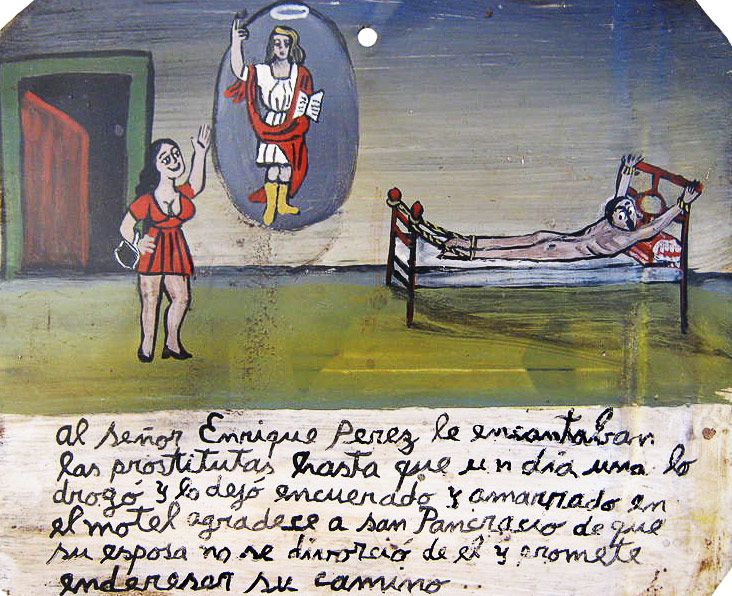 al señor Enrique Perez le encantaban
las prostitutas hasta que un dia una lo
drogó y lo dejó encuerado y amarrado en
el motel agradece a san Pancracio de que
su esposa no se divorció de el y promete
endereser su camino